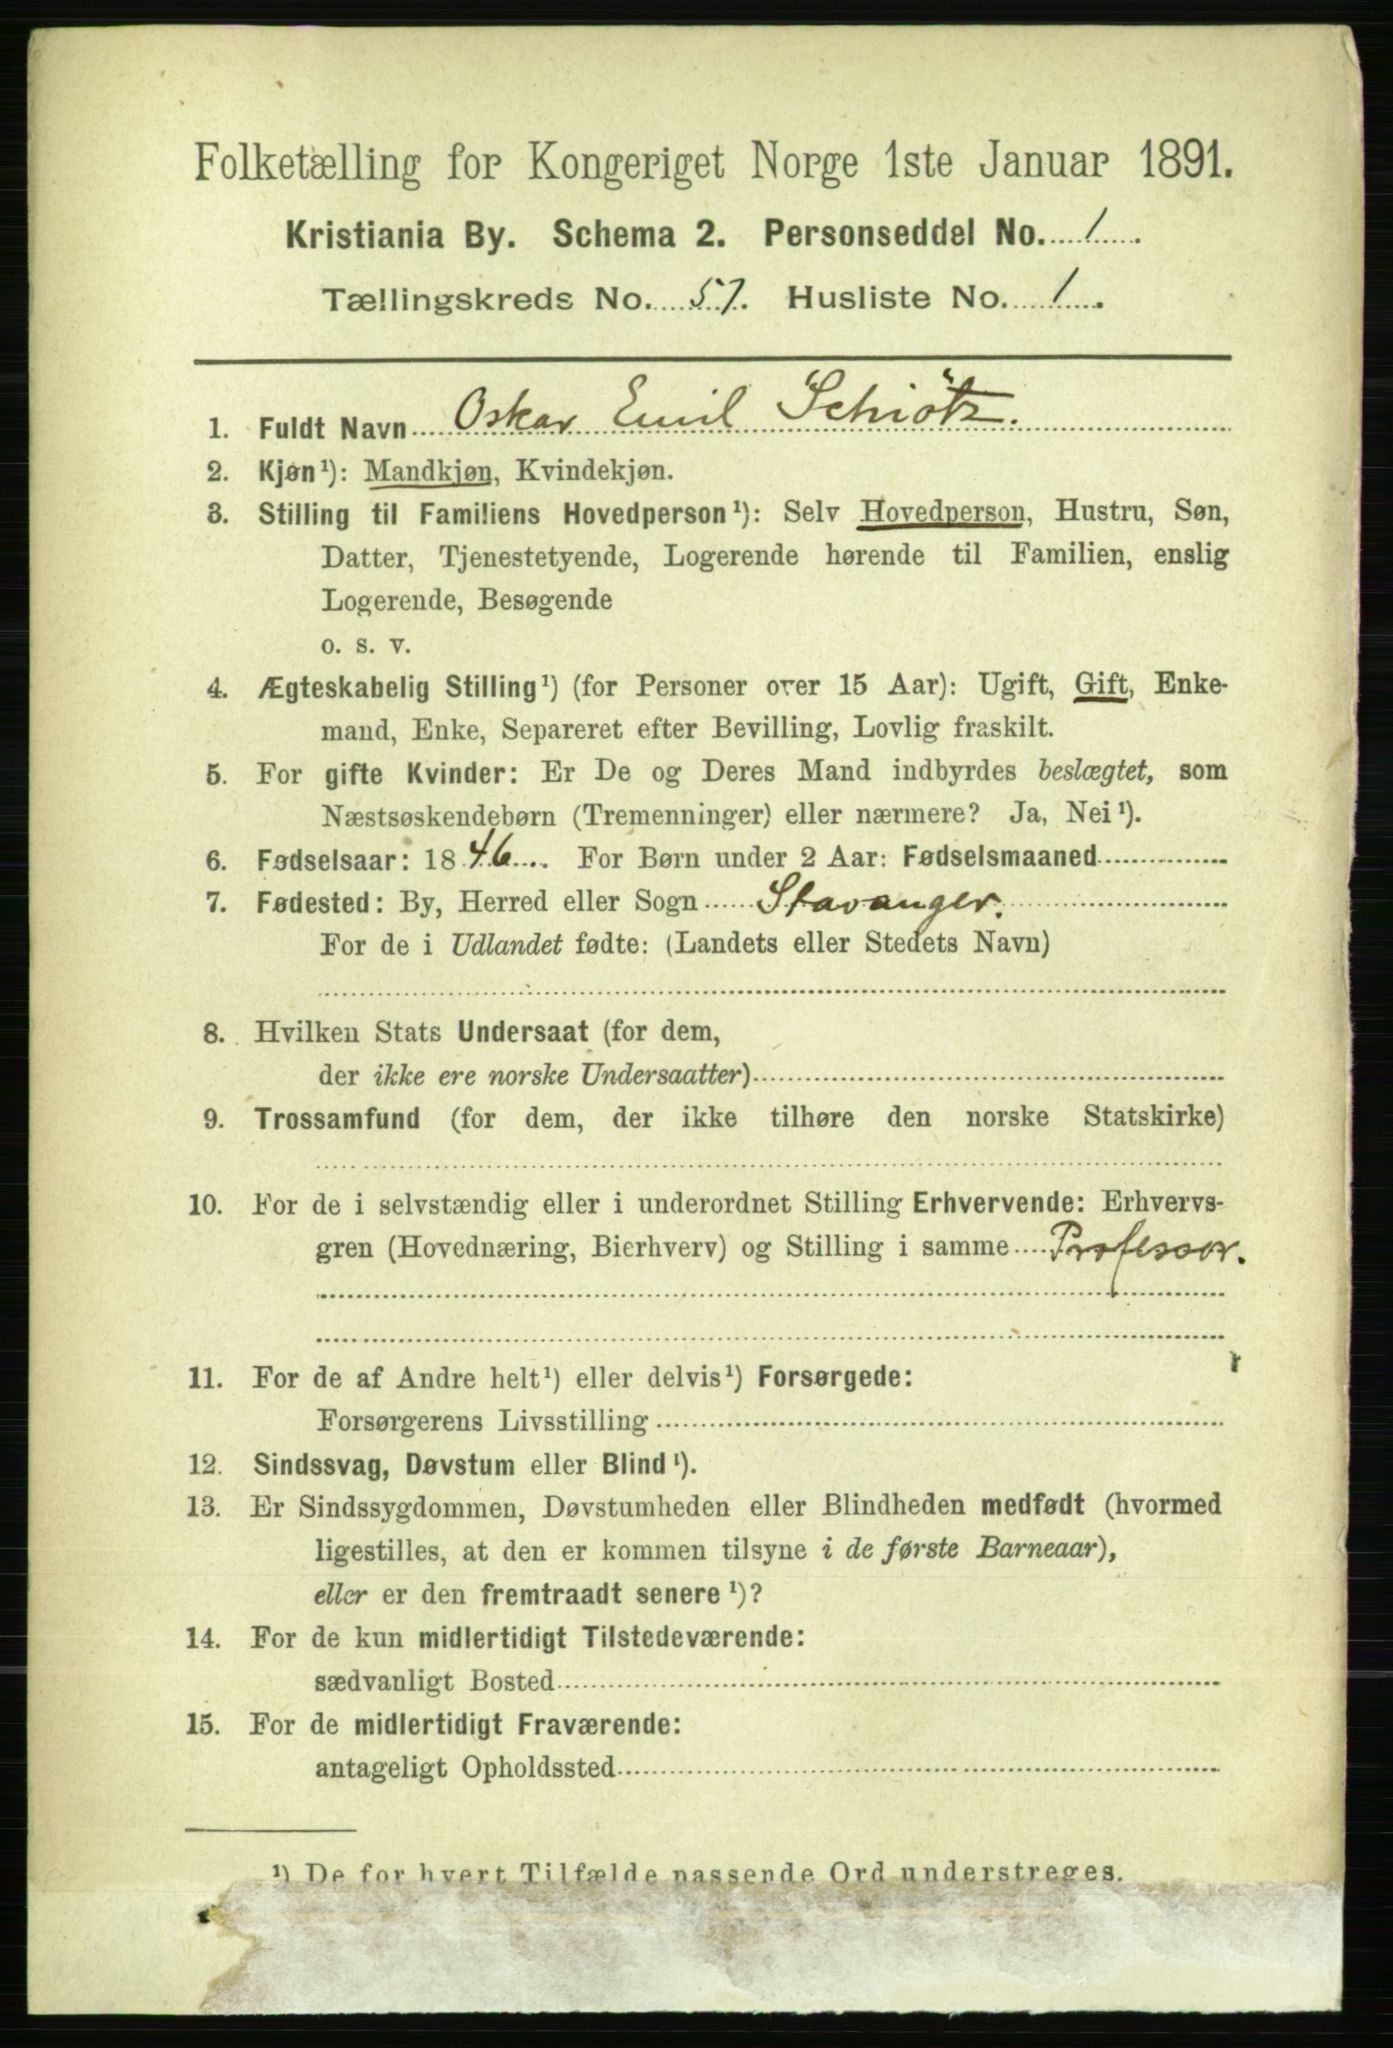 Folketælling for Kongeriget Norge 1ste Januar 1891.
Kristiania By. Schema 2. Personseddel No. 1
Tællingskreds No. 57. Husliste No. 1.
1. Fuldt Navn Oskar Emil Schiötz.
2. Kjøn¹): Mandkjøn, Kvindekjøn.
3. Stilling til Familiens Hovedperson¹): Selv Hovedperson, Hustru, Søn,
Datter, Tjenestetyende, Logerende hørende til Familien, enslig
Logerende, Besøgende
o. s. v.
4. Ægteskabelig Stilling¹) (for Personer over 15 Aar): Ugift, Gift, Enke-
mand, Enke, Separeret efter Bevilling, Lovlig fraskilt.
5. For gifte Kvinder: Er De og Deres Mand indbyrdes beslægtet, som
Næstsøskendebørn (Tremenninger) eller nærmere? Ja, Nei¹).
6. Fødselsaar: 1846. For Børn under 2 Aar: Fødselsmaaned
7. Fødested: By, Herred eller Sogn Stavanger.
For de i Udlandet fødte: (Landets eller Stedets Navn)
8. Hvilken Stats Undersaat (for dem,
der ikke ere norske Undersaatter)
9. Trossamfund (for dem, der ikke tilhøre den norske Statskirke)
10. For de i selvstændig eller i underordnet Stilling Erhvervende: Erhvervs-
gren (Hovednæring, Bierhverv) og Stilling i samme Professor.
11. For de af Andre helt¹) eller delvis¹) Forsørgede:
Forsørgerens Livsstilling
12. Sindssvag, Døvstum eller Blind¹).
13. Er Sindssygdommen, Døvstumheden eller Blindheden medfødt (hvormed
ligestilles, at den er kommen tilsyne i de første Barneaar),
eller er den fremtraadt senere¹)?
14. For de kun midlertidigt Tilstedeværende:
sædvanligt Bosted
15. For de midlertidigt Fraværende:
antageligt Opholdssted
¹) De for hvert Tilfælde passende Ord understreges.